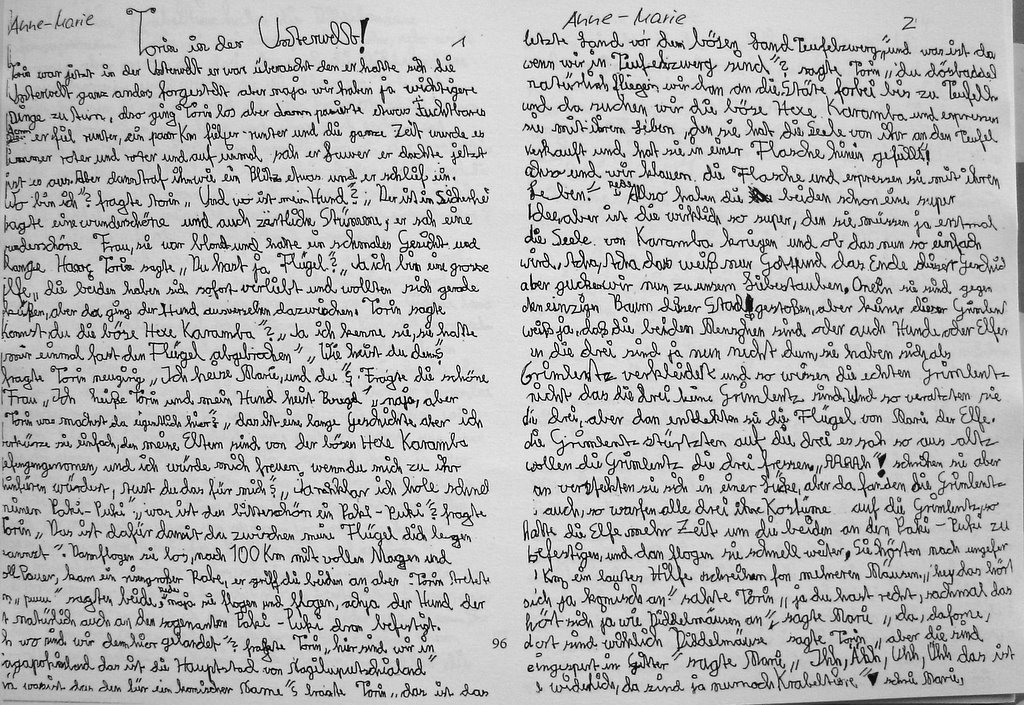 Anne-Marie
Torin in der Unterwelt!
1
Torin war jetzt in der Unterwelt er war überascht den er hatte sich die
Unterwelt ganz anders forgestelt aber naja wir haben ja wichtigere
Dinge zu turn, also ging Torin los aber dann pasirte etwas Fuchtbares
er fiel runter, ein paar Km tiefer runter und die ganze Zeit wurde es
immer roter und roter und auf einmal sah er Feuer er dachte jetzt
ist es aus. Aber dann traf ihn wie ein Blitz etwas und er schlief ein.
Wo bin ich"? fragte Torin „Und wo ist mein Hund"? „Du ist in Sicherhei
sagte eine wunderschöne und auch zärtliche Stimme, er sah eine
wunderschöne Frau, sie war blond und hatte ein schmales Gesicht und
lange Haare, Torin sagte „Du hast ja Flügel"? „Ja ich bin eine grosse
Elfe„ die beiden haben sich sofort verliebt und wollten sich gerade
küssen, aber da ging der Hund ausversehen dazwischen. Torin sagte
kennst du die böse Hexe Karamba"? „Ja ich kenne sie, sie hatte
mir einmal fast den Flügel abgebrochen" „Wie heist du den"?
fragte Torin neugirig „Ich heise Marie, und du"? Fragte die schöne
Frau „Ich heiße Torin und mein Hund heist " naja, aber
Torin was machst du eigentlich hier"? „das ist eine lange Geschichte aber ich
verkürze sie einfach, den meine Eltern sind von der bösen Hexe Karamba
gefangengenomen, und ich würde mich freuen, wenn du mich zu ihr
hinführen würdest, tust du das für mich"? „Ja na klar ich hole schnel
meinen Paki-Puki", was ist den bitteschön ein Paki-Puki"? fragte
Torin „ Das ist dafür damit du zwischen meine Flügel dich legen
kannst". Dann flogen sie los, nach 100 Km mit vollen Magen und
Pauer, kam ein riesengroßer Rabe, er griff die beiden an aber Torin
„puuu" sagten beide, naja sie flogen und flogen, achja der Hund der
natürlich auch an den sogenanten Paki-Puki dran befestigt.
wo sind wir den hier gelandet"? fragte Torin „hier sind wir in
das ist die Hauptstad von Nagiluputschialand"
was ist das den für ein komischer Name"? fragte Torin „das ist das
96
Anne-Marie
2
letzte Land vor dem bösen Land Teufelszwerg" und was ist da
wenn wir in Teufelszwerg sind"? sagte Torin „du dösbaddel
natürlich fliegen wir dan an die Stäte forbei bis zu Teufels
und da suchen wir die böse Hexe Karamba und erpressen
sie mit ihrem Leben „den sie hat die Seele von ihr an den Teufel
verkauft und hat sie in einer Flasche hinein gefüllt"!
Ahso und wir klauen die Flasche und erpressen sie mit ihren
Leben". Also haben die beiden schon eine super
Idee, aber ist die wirklich so super, den sie müssen ja erstmal
die Seele von Karamba kriegen und ob das nun so einfach
wird. Aha, Aha das weiß nun Gott und das Ende dieser Geschich
aber gucken wir nun zu unsern Liebestauben. Onein sie sind gegen
den einzigen Baum dieser Stad gestoßen, aber keiner dieser Grimlent
weiß ja, daß die beiden Menschen sind oder auch Hunde oder Elfen
die drei sind ja nun nicht dum, sie haben sich als
Grimlentz verkleidet und so wissen die echten Grimlentz
nicht das die drei keine Grimlentz sind. Und so veratzten sie
die drei, aber dan entdekten sie die Flügel von Marie der Elfe.
die Grimlentz stürtzten auf die drei es sah so aus altz
wollen die Grimlentz die drei fressen. „AAAAh"! schrihen sie aber
an verstekten sie sich in einer Lücke, aber da fanden die Grimlentz
auch, so warfen alle drei ihre Kostüme auf die Grimlentz, so
hatte die Elfe mehr Zeit um die beiden an den Paki-Puki zu
befestigen, und dan flogen sie schnell weiter. Sie hörten nach ungefer
1 Km ein lautes Hilfe schreihen fon mehreren Mäusen. „hey das hört
sich ja komisch an" sahte Torin „ja du hast recht, sachmal das
hört sich ja wie Diddelmäusen an", sagte Marie „da, daforne,
dort sind wirklich Diddelmäuse" sagte Torin „aber die sind
eingespert in Gitter" sagte Marie „Ihh, Ähh, Uhh, Ühh das ist
widerlich, da sind ja nur noch Krabeltiere"! schrie Marie,